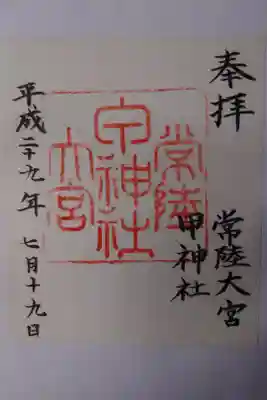 奉拝
常陸大宮
甲神社
常陸
甲神社
大宮
平成二十九年 七月十九日